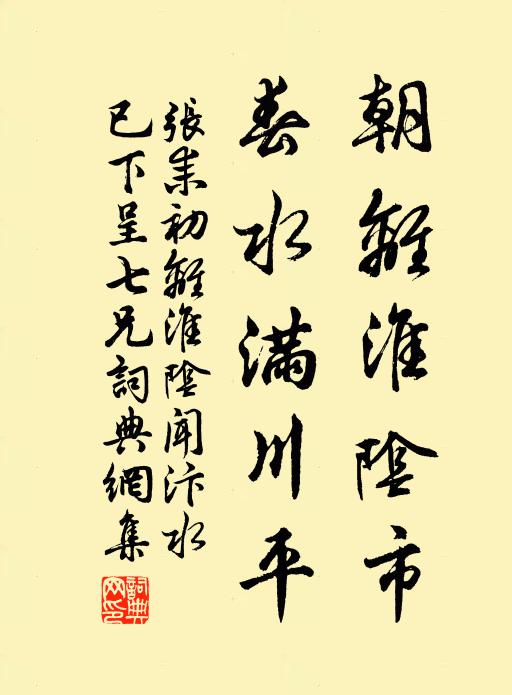 朝離淮陰市
春水滿川平
張耒初離淮陰聞汴水
已下呈七兄詞典網集
詞典網印